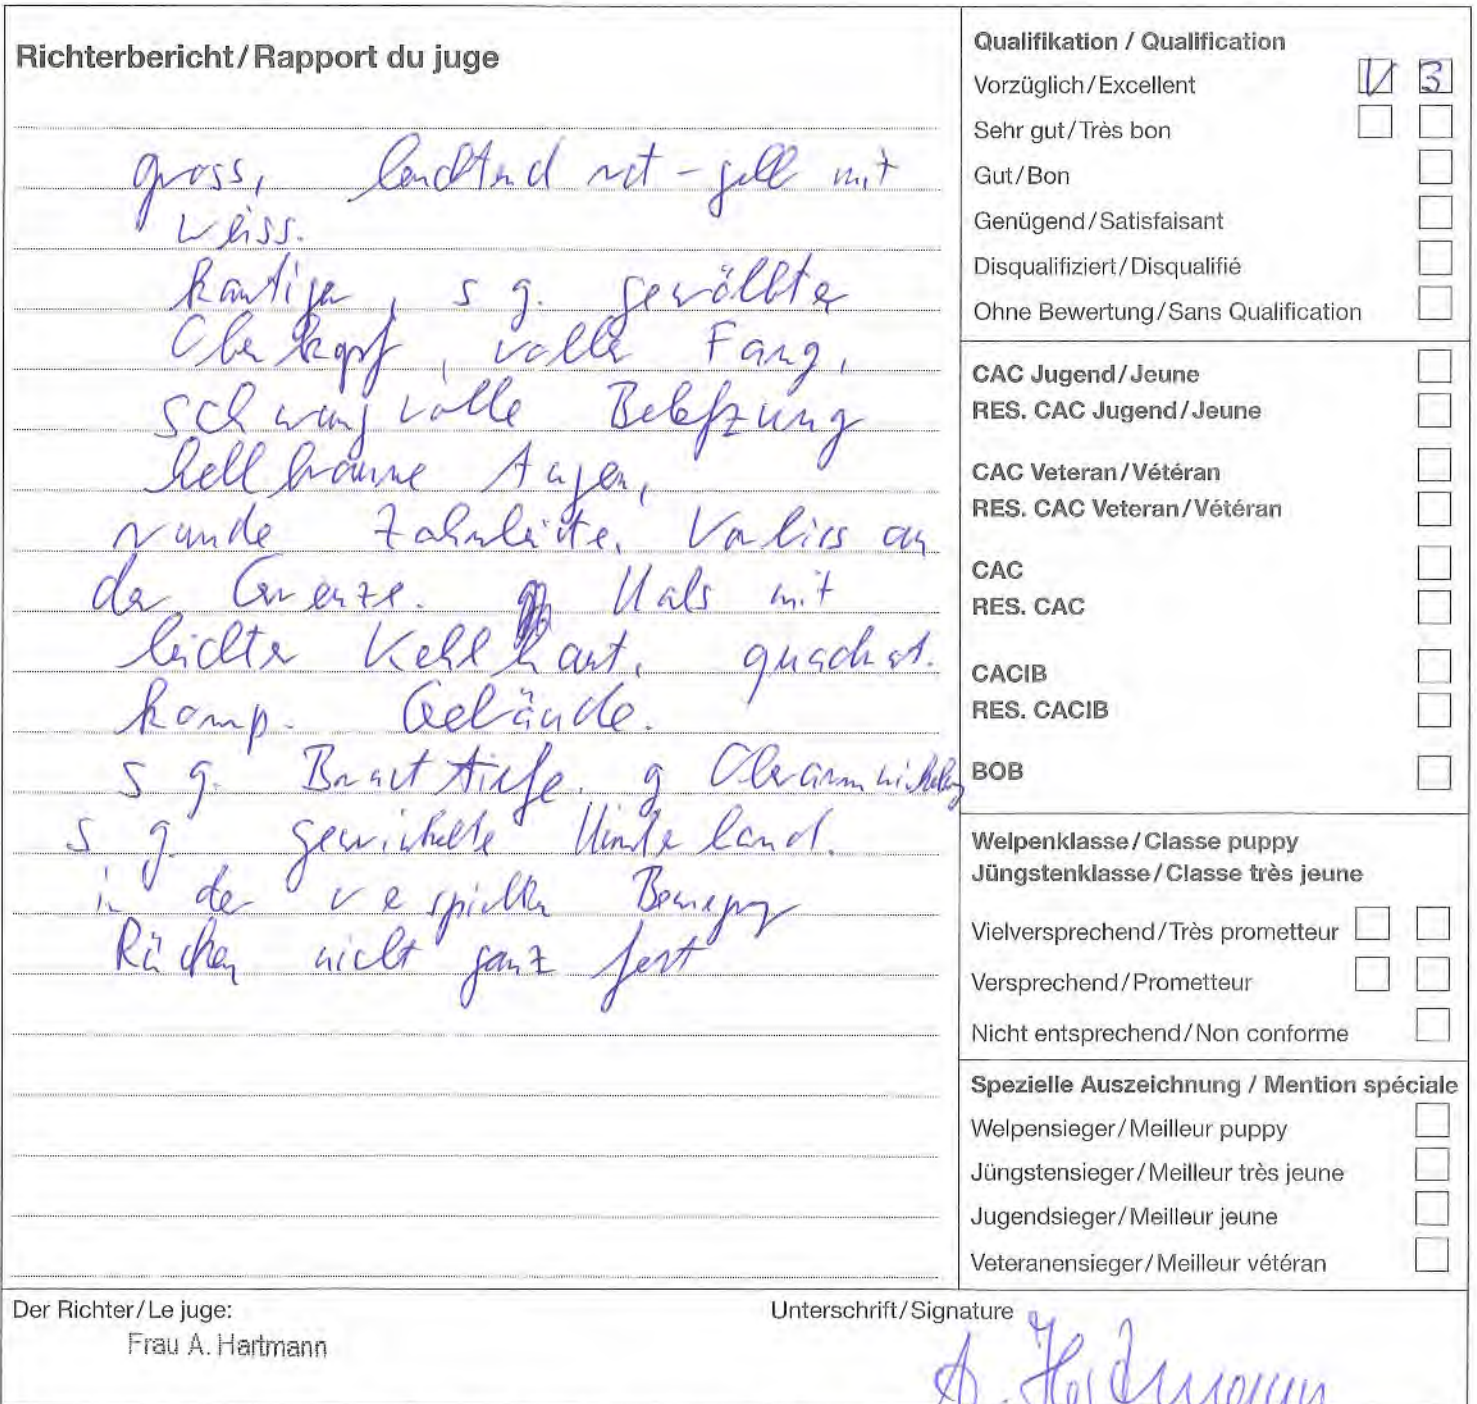 Richterbericht/Rapport du juge
gross, leuchtend rot-gelb mit
weiss.
kantiger, s g. gewölbter
Oberkopf, voller Fang,
schwungvolle Belefzung
hellbraune Augen,
runde Zahnleiste. Vorbiss an
der Grenze. Hals mit
leichter Kehlhaut, quadrat.
komp. Gebäude.
s g. Brusttiefe. g Oberarmwinkelung
s g. gewinkelte Hinterhand.
in der verspielten Bewegung
Rücken nicht ganz fest
Qualifikation / Qualification
Vorzüglich/Excellent V 3
Sehr gut/Très bon
Gut/Bon
Genügend/Satisfaisant
Disqualifiziert/Disqualifié
Ohne Bewertung/Sans Qualification
CAC Jugend/Jeune
RES. CAC Jugend/Jeune
CAC Veteran/Vétéran
RES. CAC Veteran/Vétéran
CAC
RES. CAC
CACIB
RES. CACIB
BOB
Welpenklasse/Classe puppy
Jüngstenklasse/Classe très jeune
Vielversprechend/Très prometteur
Versprechend/Prometteur
Nicht entsprechend/Non conforme
Spezielle Auszeichnung / Mention spéciale
Welpensieger/Meilleur puppy
Jüngstensieger/Meilleur très jeune
Jugendsieger/Meilleur jeune
Veteranensieger/Meilleur vétéran
Der Richter/Le juge:
Frau A. Hartmann
Unterschrift/Signature
A. Hartmann